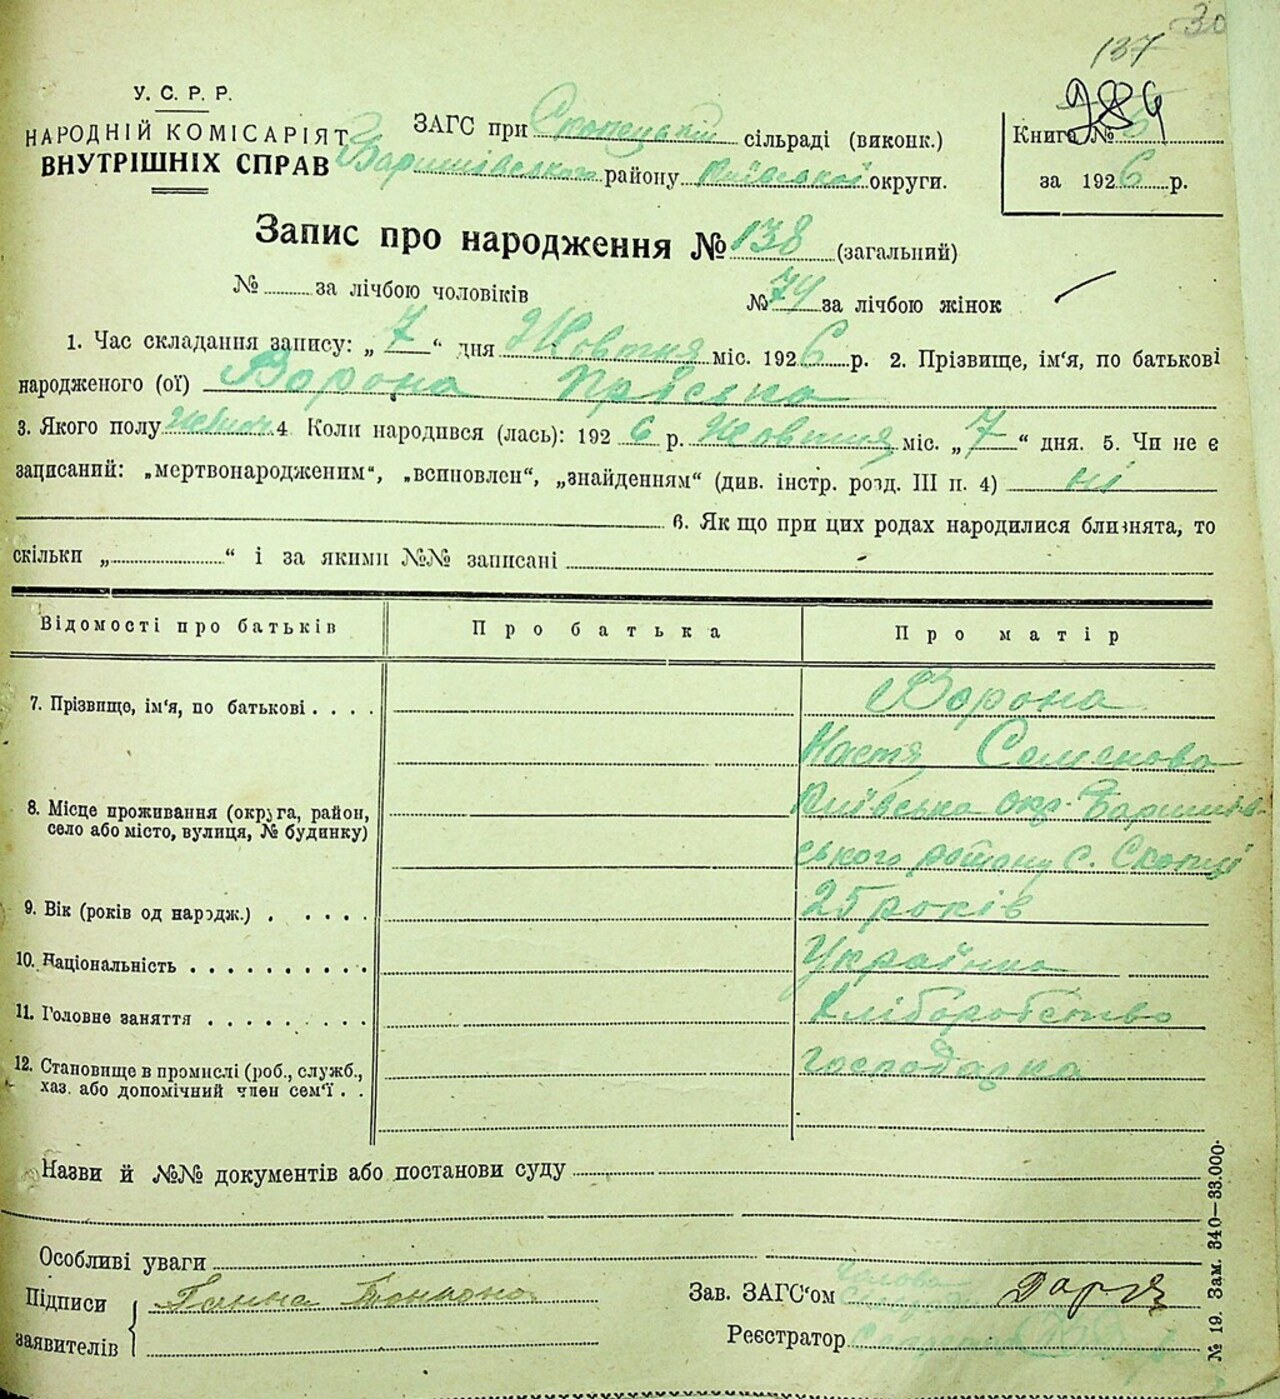 30
137
984
У. С. Р. Р.
НАРОДНІЙ КОМІСАРІЯТ
ВНУТРІШНІХ СПРАВ
ЗАГС при Скопецькій сільраді (виконк.)
Баришівського району Київської округи.
Книга №
за 1926 р.
Запис про народження № 138 (загальний)
№ за лічбою чоловіків № 74 за лічбою жінок
1. Час складання запису: „ 7 “ дня Жовтня міс. 1926 р. 2. Прізвище, ім'я, по батькові
народженого (ої) Ворона Пріська
3. Якого полу жіноч. 4 Коли народився (лась): 192 6 р. Жовтня міс. „ 7 “ дня. 5. Чи не є
записаний: „мертвонародженим“, „всиновлен“, „знайденням“ (див. інстр. розд. III п. 4) ні
6. Як що при цих родах народилися близнята, то
скільки „ “ і за якими №№ записані
Відомості про батьків Про батька Про матір
7. Прізвище, ім'я, по батькові . . . . Ворона
Настя Семенова
8. Місце проживання (округа, район, село або місто, вулиця, № будинку) Київська окр. Баришів-
ського району с. Скопці
9. Вік (років од народж.) . . . . . 25 років
10. Національність . . . . . . . . . . Українка
11. Головне заняття . . . . . . . . . Хліборобство
12. Становище в промислі (роб., служб., господарка
хаз. або допомічний член сем'ї . .
Назви й №№ документів або постанови суду
Особливі уваги
Підписи Ганна
заявителів
Зав. ЗАГС'ом Голова
Реєстратор Секретар
№ 19. Зам. 340—33.000.